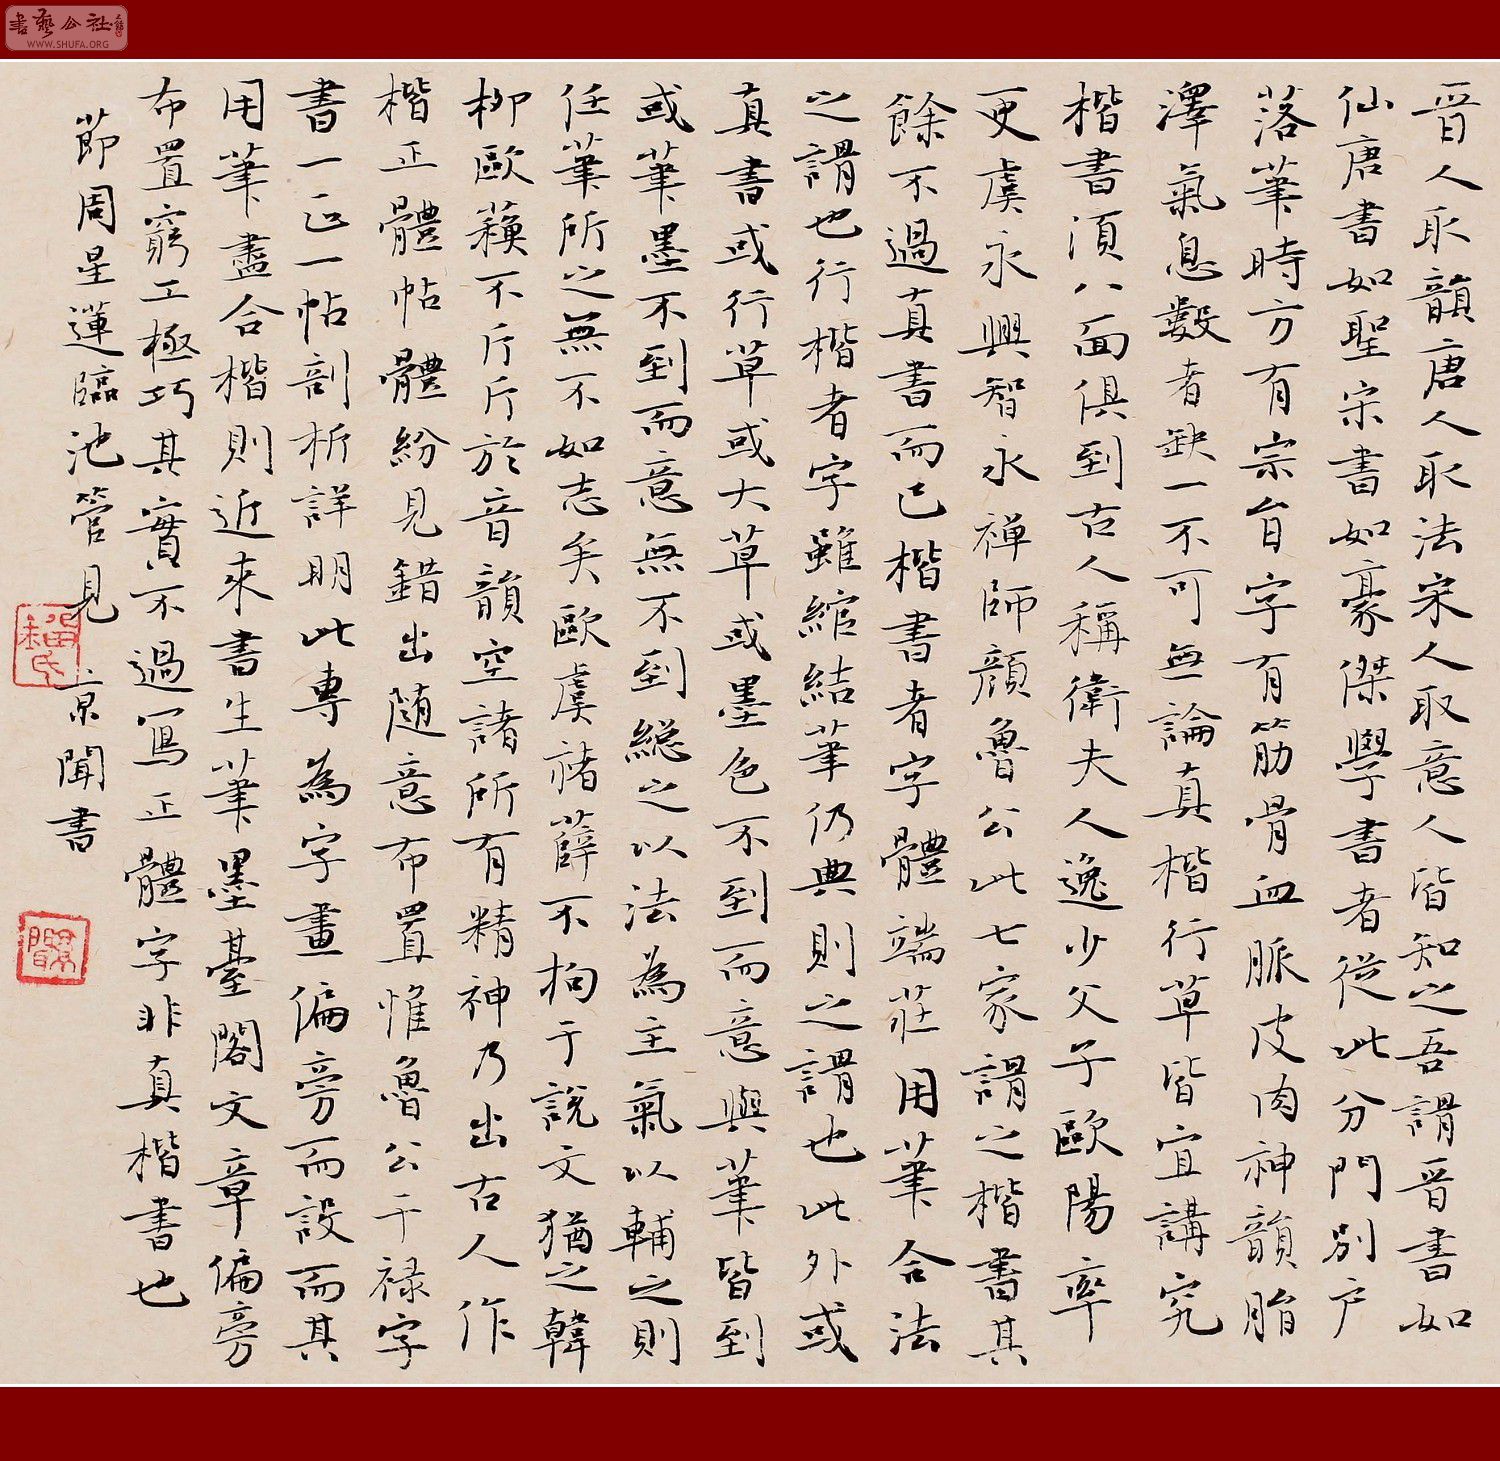 書藝公社
WWW.SHUFA.ORG
晉人取韻唐人取法宋人取意人皆知之吾謂晉書如
仙唐書如聖宋書如豪傑學書者從此分門別户
落筆時方有宗旨字有筋骨血脈皮肉神韻脂
澤氣息數者缺一不可無論真楷行草皆宜講究
楷書須八面俱到古人稱衛夫人逸少父子歐陽率
更虞永興智永禅師顔魯公此七家謂之楷書其
餘不過真書而已楷書者字體端莊用筆合法
之謂也行楷者字雖綰結筆仍典則之謂也此外或
真書或行草或大草或墨色不到而意與筆皆到
或筆墨不到而意無不到縂之以法為主氣以輔之則
任筆所之無不如志矣歐虞褚薛不拘于説文猶之韓
柳歐蘓不斤斤於音韻空諸所有精神乃出古人作
楷正體帖體紛見錯出随意布置惟魯公干禄字
書一正一帖剖析詳明此專為字畫偏旁而設而其
用筆盡合楷則近来書生筆墨臺閣文章偏旁
布置窮工極巧其實不過寫正體字非真楷書也
節周星蓮臨池管見 景聞書